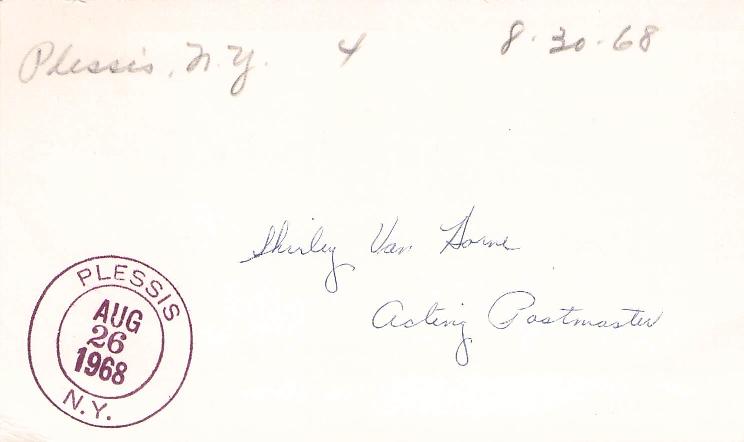 Plessis, N.Y. 4 8-30-68
Shirley Van Horne
Acting Postmaster
PLESSIS
AUG
26
1968
N.Y.